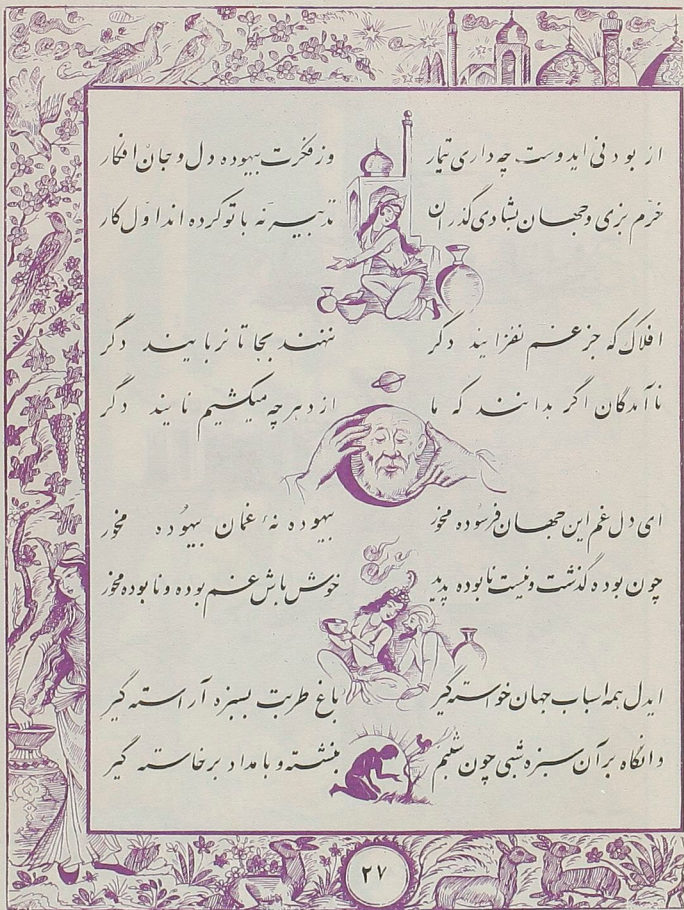 از بودنی ایدوست چه داری تیمار وز فکرت بیهوده دل و جان افکار
خرم بزی و جهان بشادی گذران تدبیر نه با تو کرده اند اول کار
افلاک که جز غم نفزایند دگر ننهند بجا تا نربایند دگر
ناآمدگان اگر بدانند که ما از دهر چه میکشیم نایند دگر
ای دل غم این جهان فرسوده مخور بیهوده نهٔ غمان بیهوده مخور
چون بوده گذشت و نیست نابوده پدید خوش باش غم بوده و نابوده مخور
ایدل همه اسباب جهان خواسته گیر باغ طربت بسبزه آراسته گیر
وانگاه بر آن سبزه شبی چون شبنم بنشسته و بامداد برخاسته گیر
۲۷